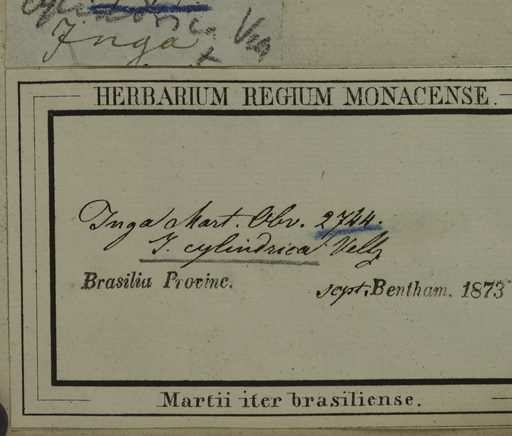 cylindrica Vell
Inga
HERBARIUM REGIUM MONACENSE.
Inga Mart. Obv. 2744.
I. cylindrica Vell
Brasilia Provinc.
sept. Bentham. 1873
Martii iter brasiliense.